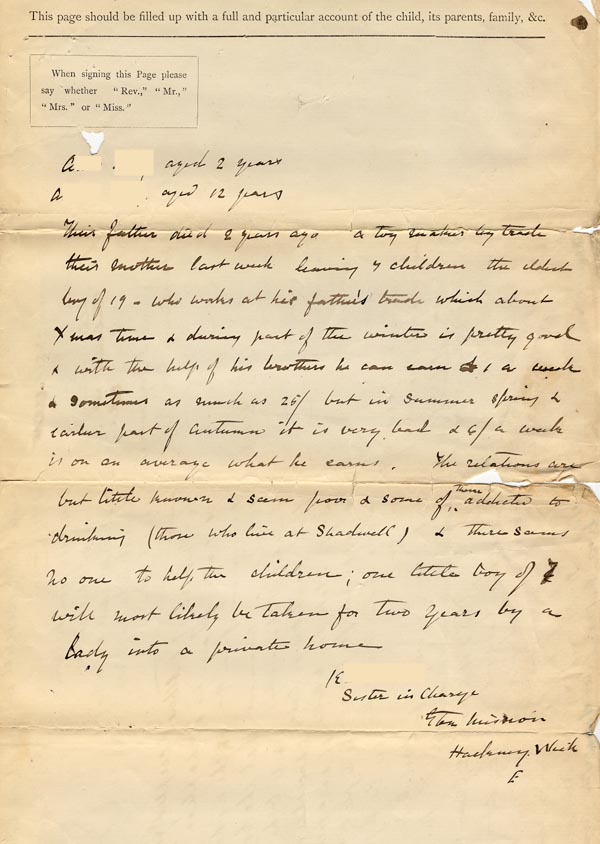 This page should be filled up with a full and particular account of the child, its parents, family, &c.
When signing this Page please
say whether "Rev.," "Mr.,"
"Mrs." or "Miss."
A aged 2 years
A aged 12 years
Their father died 2 years ago a toy maker by trade
their mother last week leaving 7 children the eldest
boy of 19 - who works at his father's trade which about
Xmas time & during part of the winter is pretty good
& with the help of his brothers he can earn £1 a week
& sometimes as much as 25/ but in summer spring &
earlier part of autumn it is very bad & 6/ a week
is on an average what he earns. The relations are
but little known & seem poor & some of them addicted to
drinking (those who live at Shadwell) & there seems
no one to help the children; one little boy of 7
will most likely be taken for two years by a
lady into a private home
E
Sister in Charge
Eton Mission
Hackney Wick
E